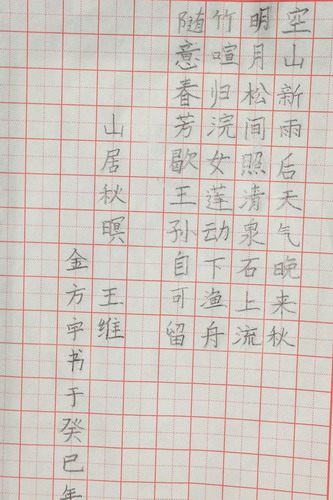 空山新雨后天气晚来秋
明月松间照清泉石上流
竹喧归浣女莲动下渔舟
随意春芳歇王孙自可留
山居秋暝 王维
金方宇书于癸巳年